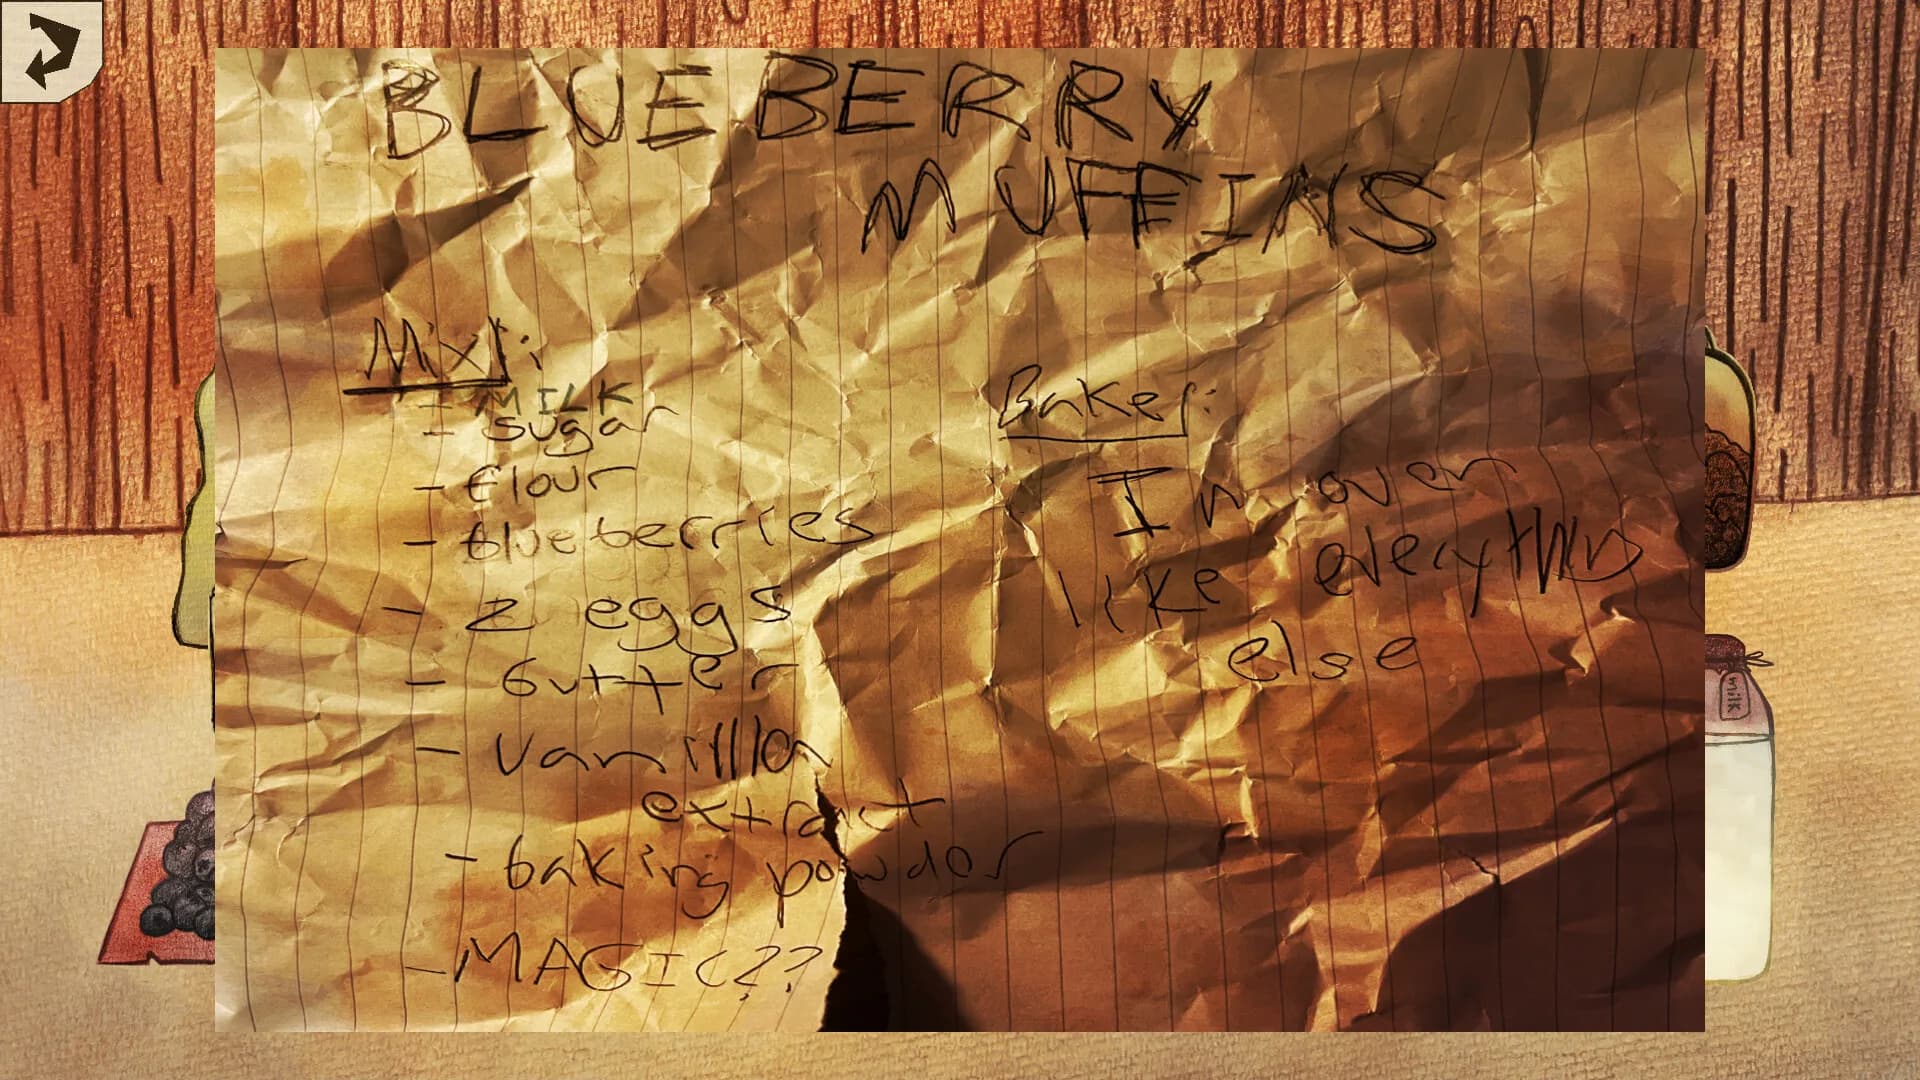 BLUEBERRY
MUFFINS
Mix:
- MILK
- sugar
- flour
- blueberries
- 2 eggs
- butter
- vanillla
extract
- baking powder
- MAGIC??
Bake:
In oven
like everything
else
milk